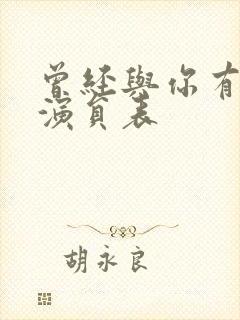 曾經與你有
演員表
胡永良